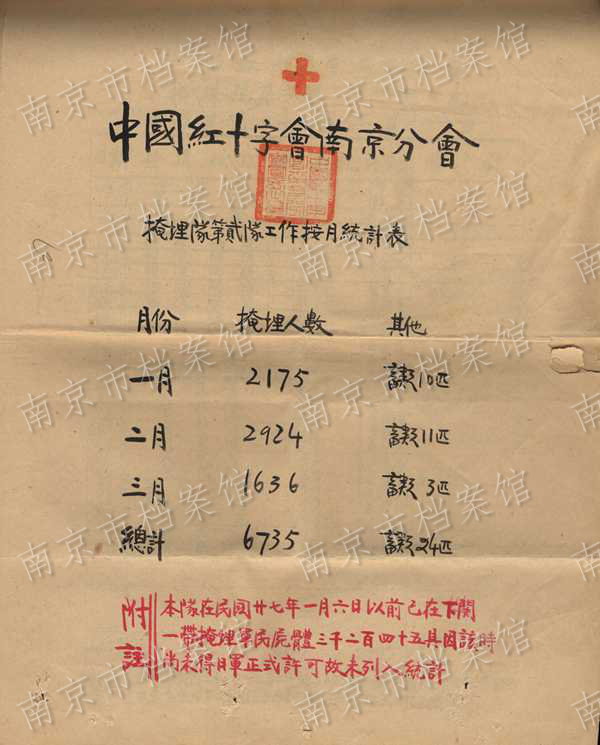 中國紅十字會南京分會
掩埋隊第貳隊工作按月統計表
月份 掩埋人數 其他
一月 2175 畜類10匹
二月 2924 畜類11匹
三月 1636 畜類3匹
總計 6735 畜類24匹
附註 本隊在民国廿七年一月六日以前已在下関
一帶掩埋軍民屍體三千二百四十五具因該時
尚未得日軍正式許可故未列入統計
南京市档案馆